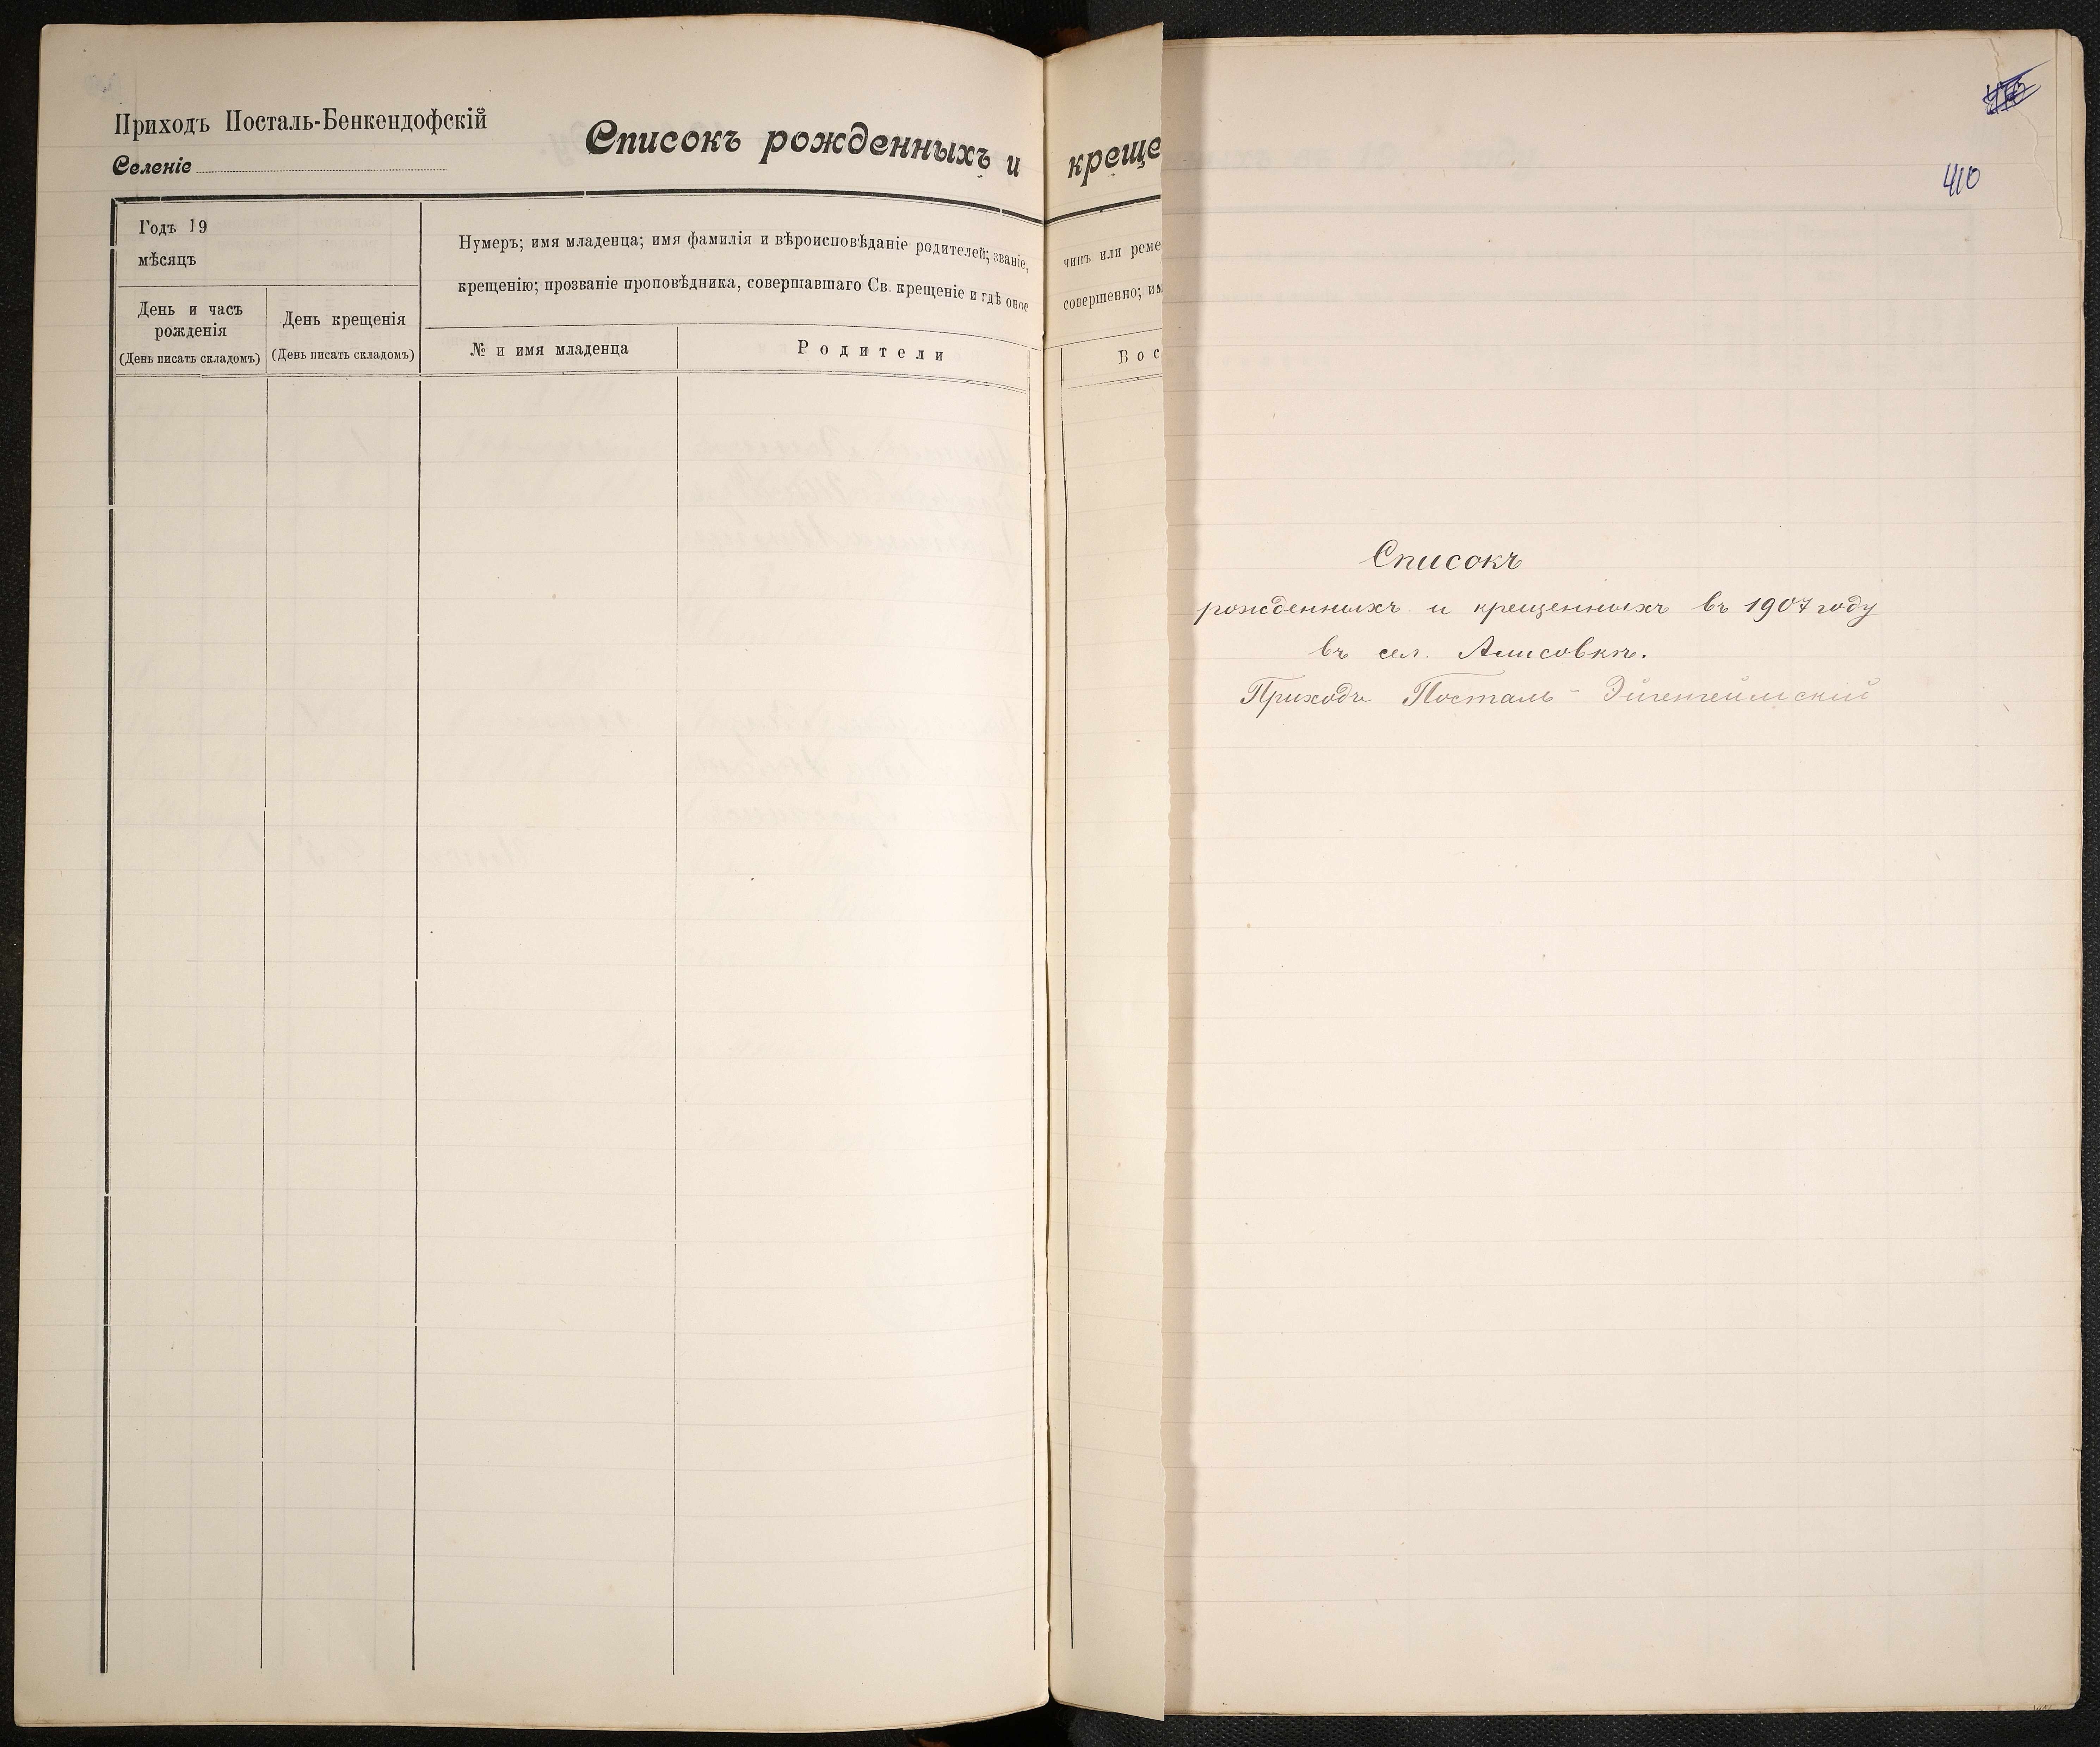 Приходъ Посталь-Бенкендофскій
Селеніе
Списокъ рожденныхъ и креще
Годъ 19
мѣсяцъ
День и часъ
рожденія
(День писать складомъ)
День крещенія
(День писать складомъ)
Нумеръ; имя младенца; имя фамилія и вѣроисповѣданіе родителей; званіе, чинъ или реме
крещенію; прозваніе проповѣдника, совершавшаго Св. крещеніе и гдѣ оное совершенно; им
№ и имя младенца
Родители
Вос
410
Списокъ
рожденныхъ и крещенныхъ въ 1907 году
въ сел. Алисовкѣ.
Приходъ Посталь - Эйгенгеймскій